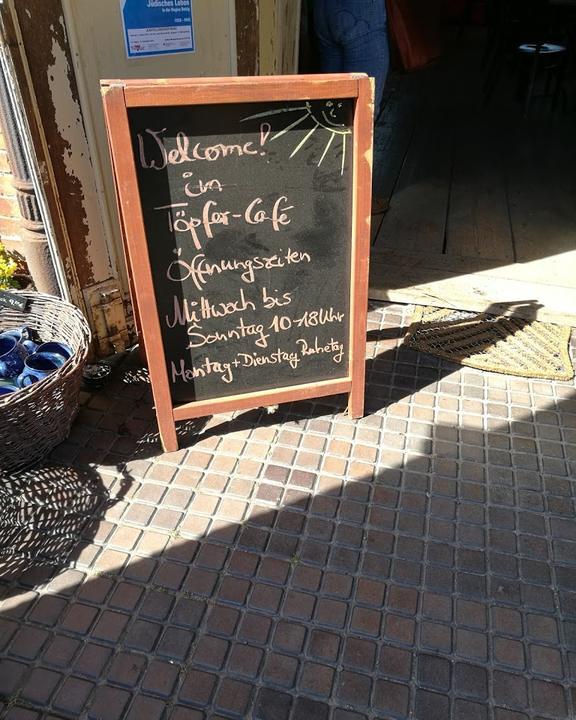 Jüdisches Leben
Welcome!
im
Töpfer-Café
Öffnungszeiten
Mittwoch bis
Sonntag 10-18 Uhr
Montag + Dienstag Ruhetag